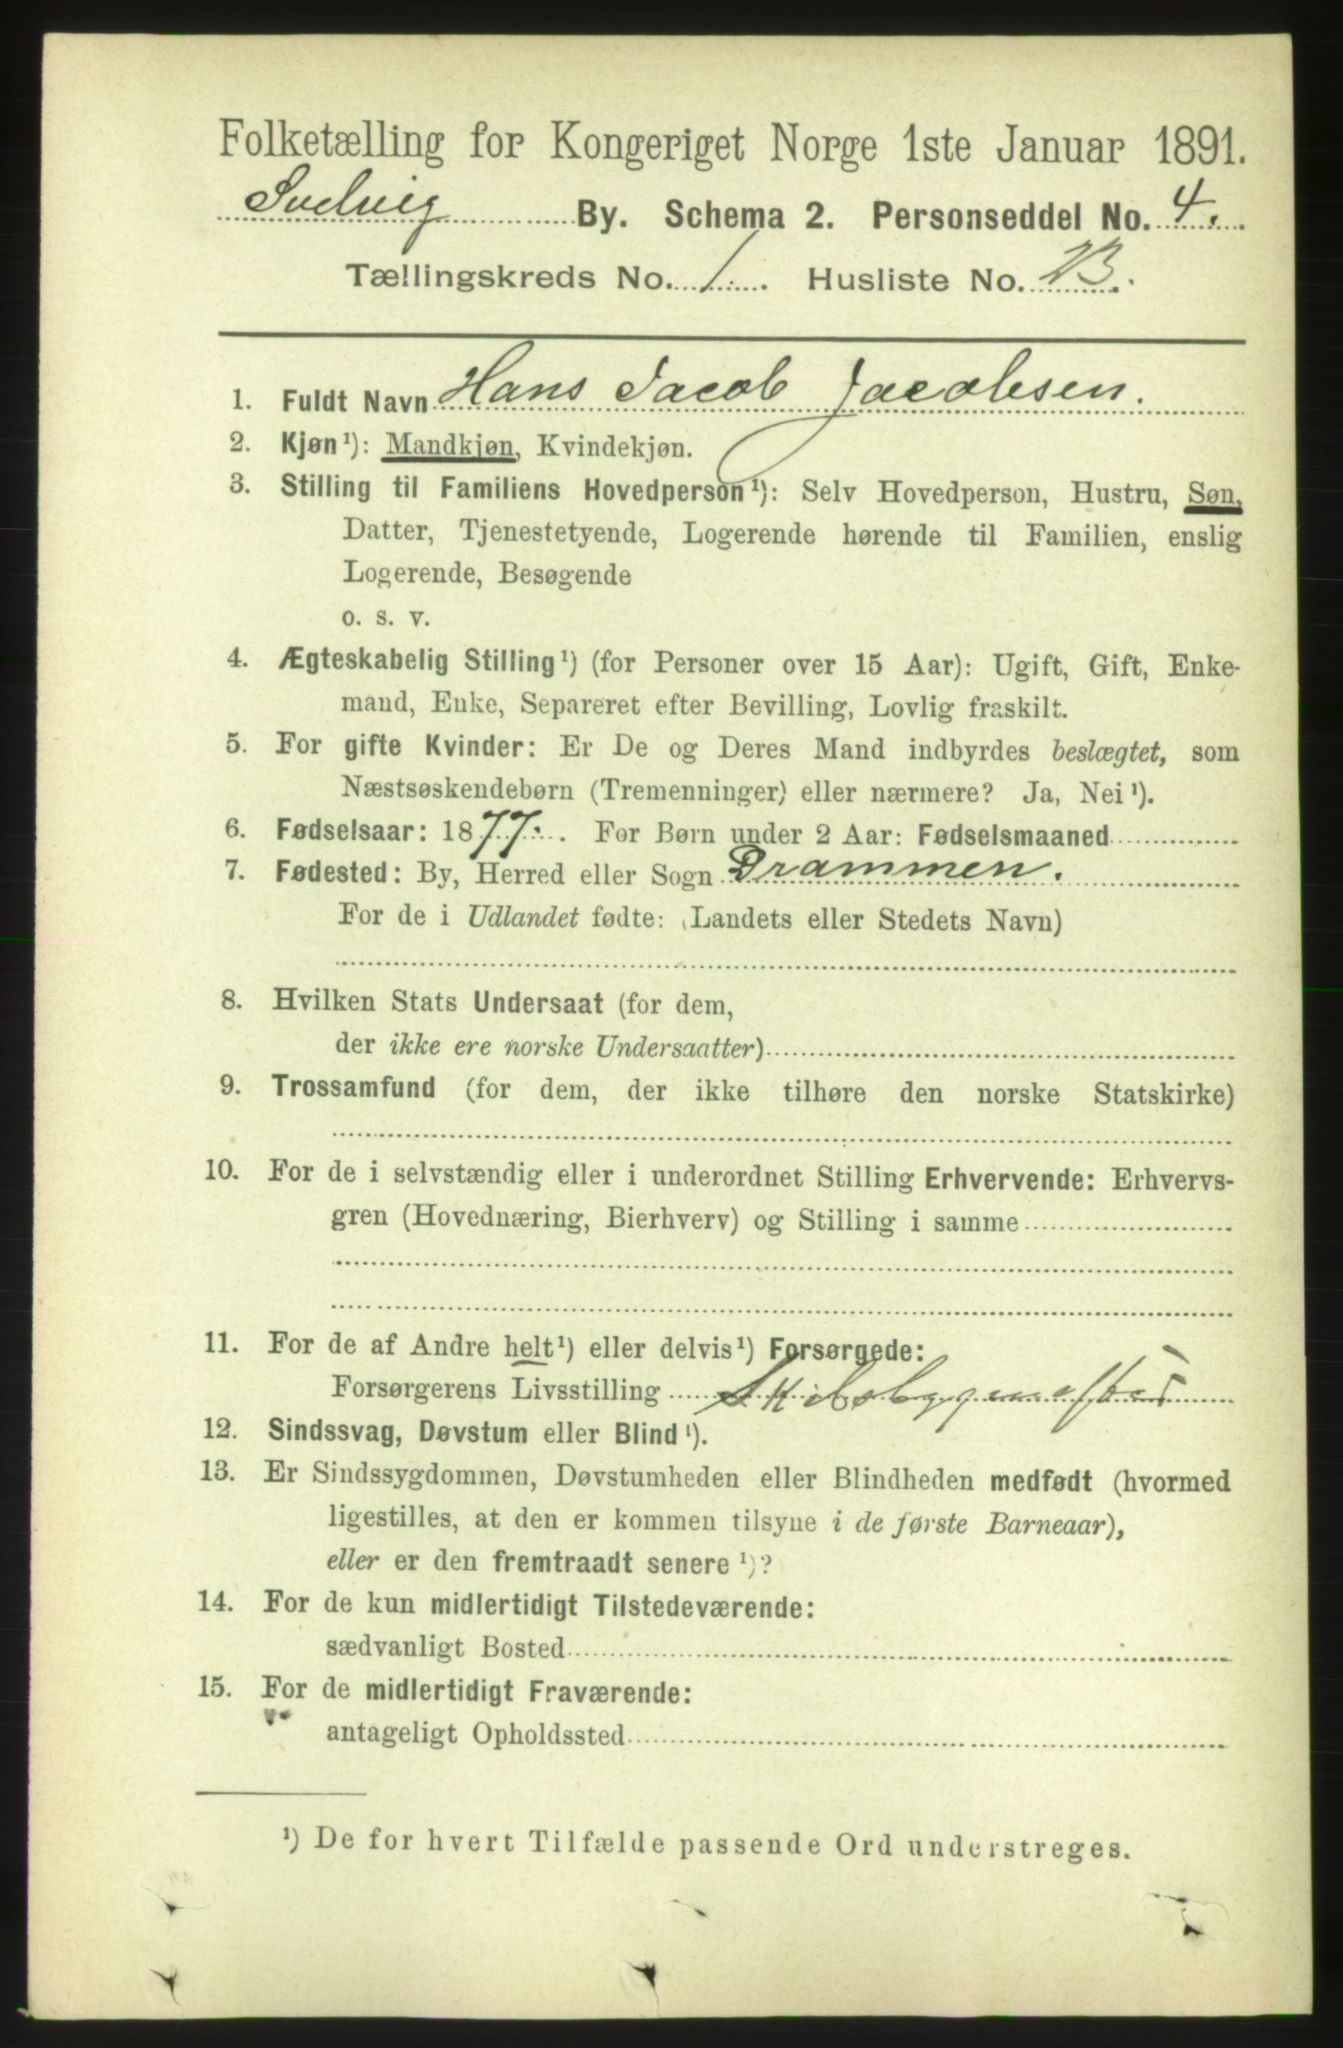 Folketælling for Kongeriget Norge 1ste Januar 1891.
Svelvig By. Schema 2. Personseddel No. 4.
Tællingskreds No. 1. Husliste No. 23.
1. Fuldt Navn Hans Jacob Jacobsen.
2. Kjøn¹): Mandkjøn, Kvindekjøn.
3. Stilling til Familiens Hovedperson¹): Selv Hovedperson, Hustru, Søn,
Datter, Tjenestetyende, Logerende hørende til Familien, enslig
Logerende, Besøgende
o. s. v.
4. Ægteskabelig Stilling¹) (for Personer over 15 Aar): Ugift, Gift, Enke-
mand, Enke, Separeret efter Bevilling, Lovlig fraskilt.
5. For gifte Kvinder: Er De og Deres Mand indbyrdes beslægtet, som
Næstsøskendebørn (Tremenninger) eller nærmere? Ja, Nei¹).
6. Fødselsaar: 1877. For Børn under 2 Aar: Fødselsmaaned
7. Fødested: By, Herred eller Sogn Drammen.
For de i Udlandet fødte: (Landets eller Stedets Navn)
8. Hvilken Stats Undersaat (for dem,
der ikke ere norske Undersaatter)
9. Trossamfund (for dem, der ikke tilhøre den norske Statskirke)
10. For de i selvstændig eller i underordnet Stilling Erhvervende: Erhvervs-
gren (Hovednæring, Bierhverv) og Stilling i samme
11. For de af Andre helt¹) eller delvis¹) Forsørgede:
Forsørgerens Livsstilling Skibsbygmester
12. Sindssvag, Døvstum eller Blind¹).
13. Er Sindssygdommen, Døvstumheden eller Blindheden medfødt (hvormed
ligestilles, at den er kommen tilsyne i de første Barneaar),
eller er den fremtraadt senere¹)?
14. For de kun midlertidigt Tilstedeværende:
sædvanligt Bosted
15. For de midlertidigt Fraværende:
antageligt Opholdssted
¹) De for hvert Tilfælde passende Ord understreges.